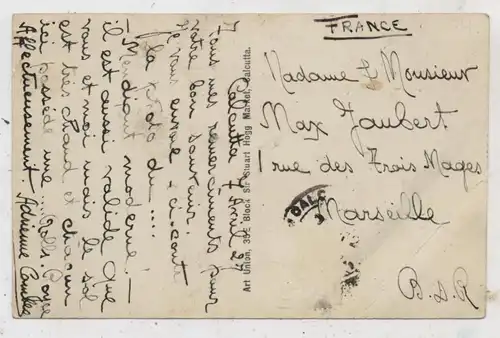 Calcutta 7 Avril 27
Tous mes remerciements pour
votre bon souvenir.
Je vous envoie ci-contre
la photo du ....
"Mendiant moderne! —
il est aussi valide que
vous et moi mais le sol
est très chaud et chacun
ici possède une ... Rolls Royce
Affectueusement Adrienne
Art Union, 35E Block Sir Stuart Hogg Market, Calcutta.
FRANCE
Madame & Monsieur
Max Jaubert
1 rue des Trois Mages
Marseille
B.d.R